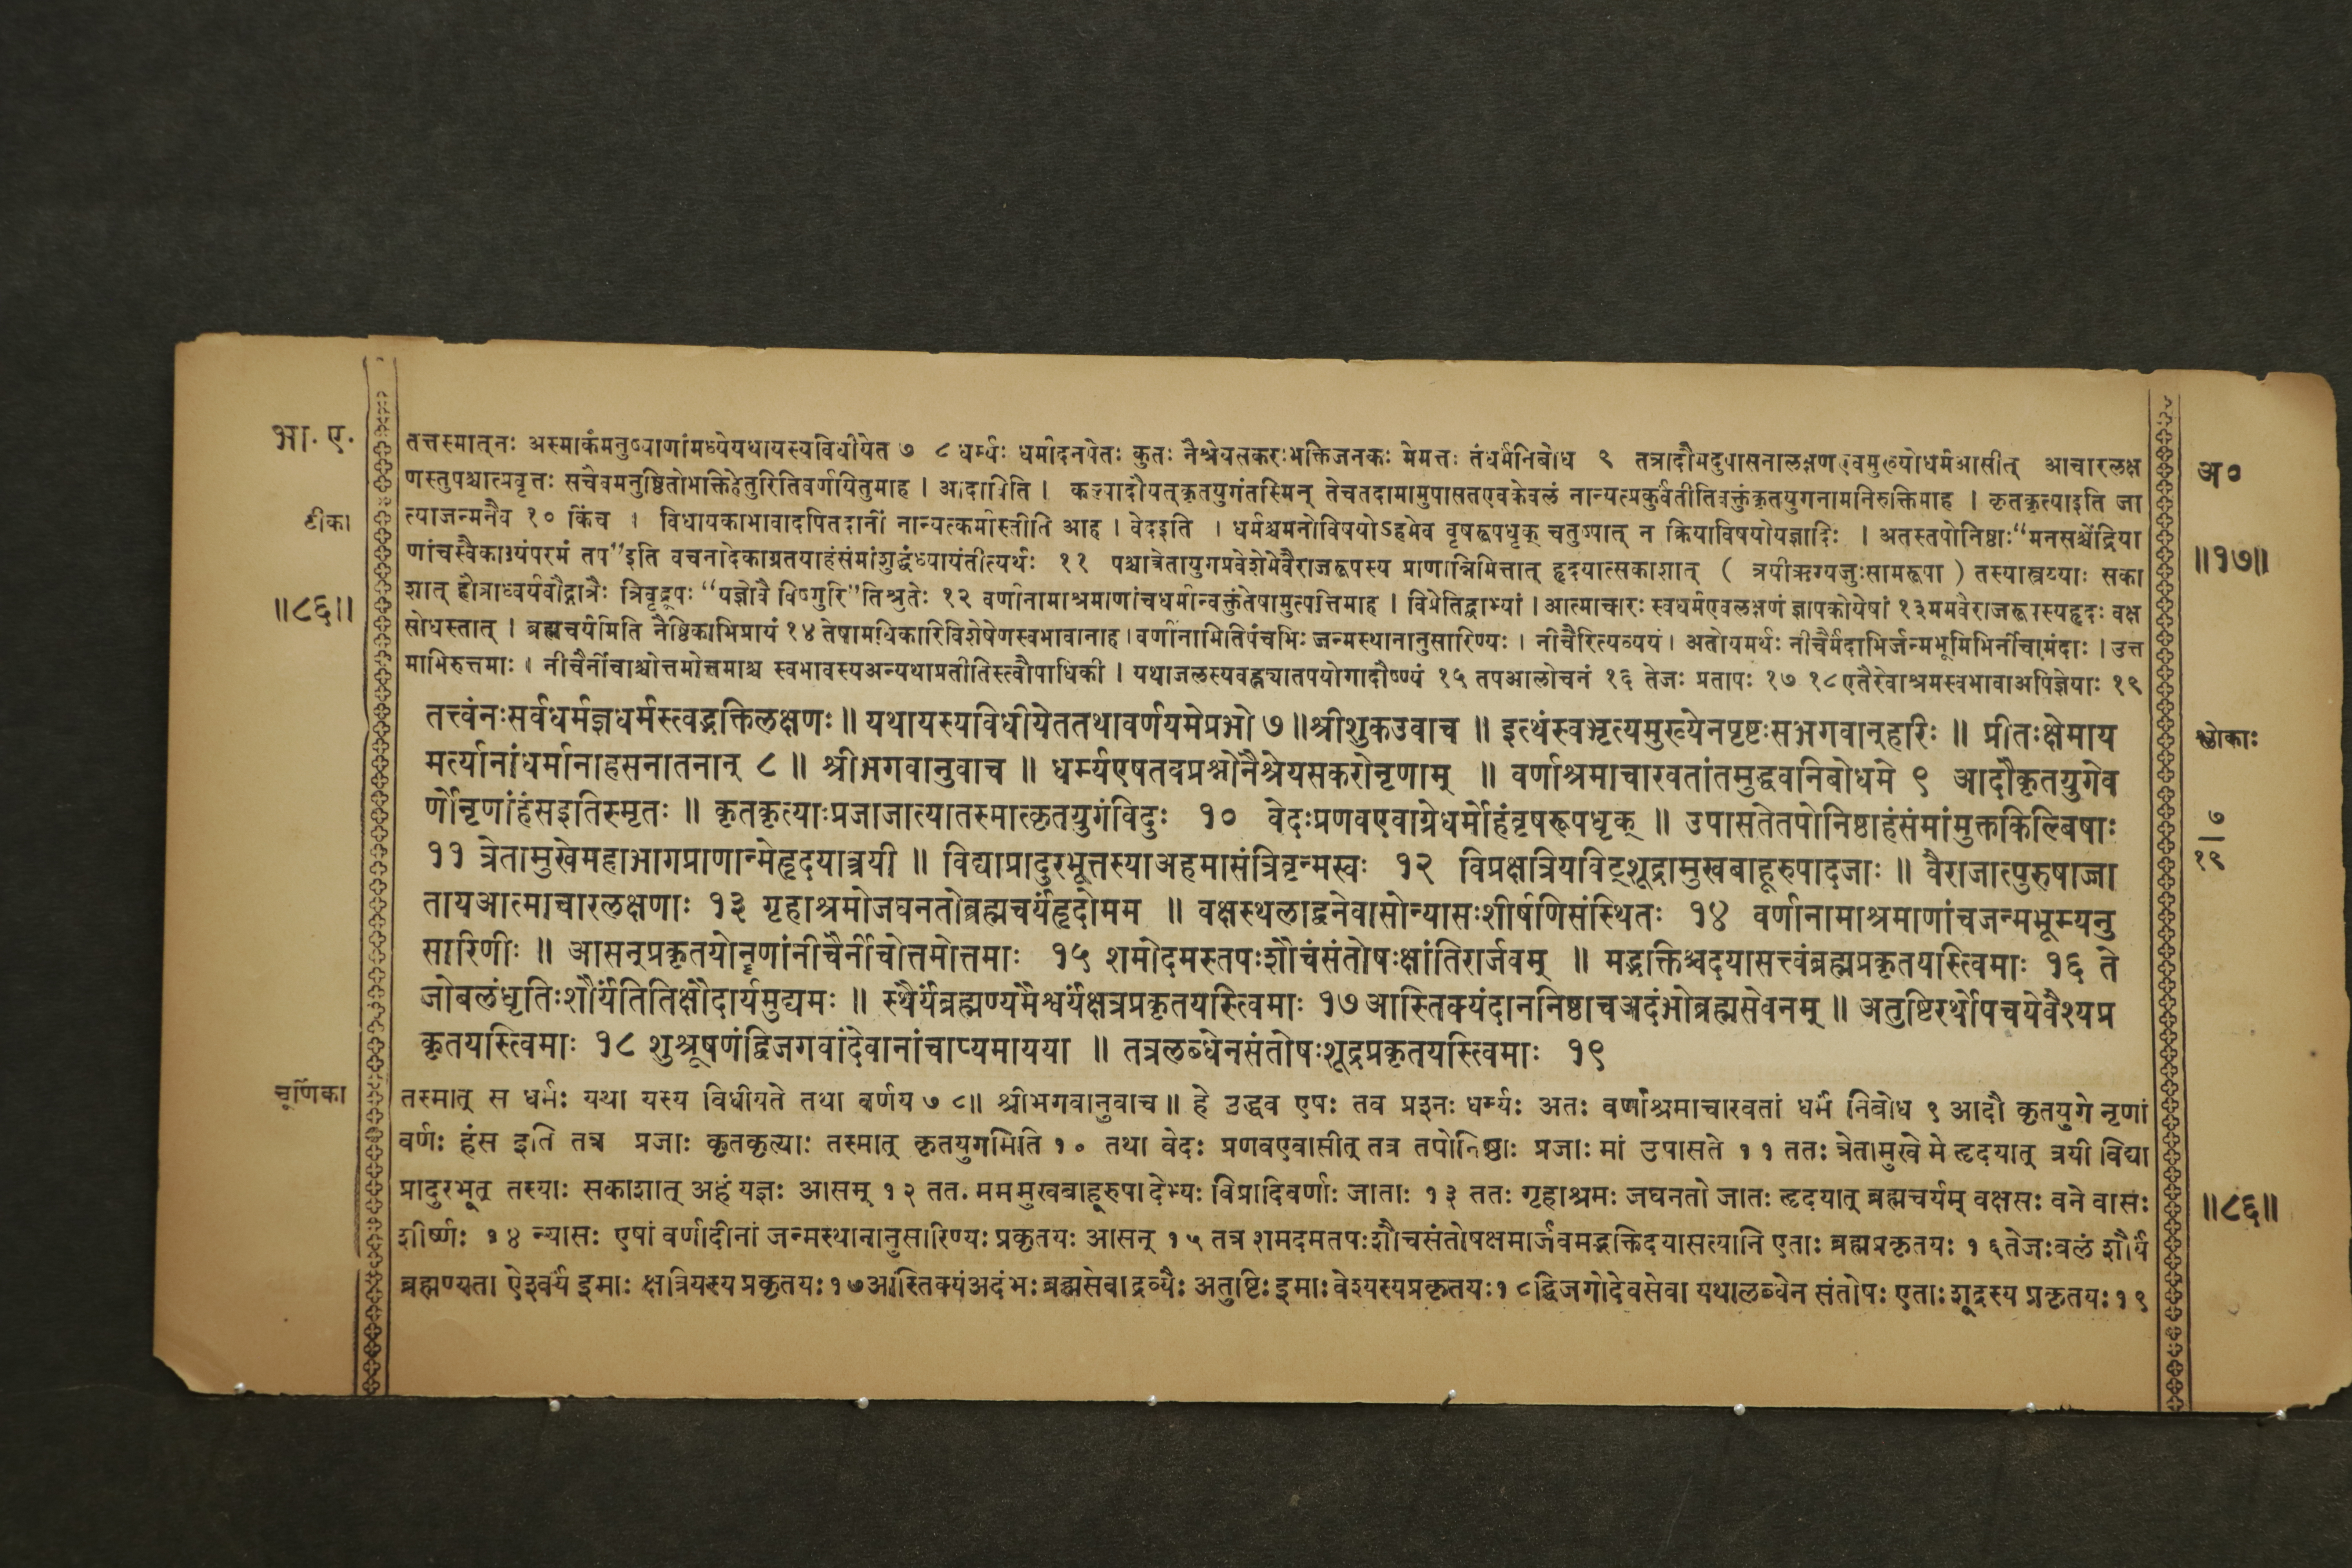 भा. ए.
टीका
॥८६॥
तत्तस्मात्नः अस्माकंमनुष्याणांमध्येयथायस्यविधीयेत ७ ८ धर्म्यः धर्मादनपेतः कुतः नैश्रेयसकरःभक्तिजनकः मेमत्तः तंधर्मनिबोध ९ तत्रादौमदुपासनालक्षणएवमुख्योधर्मआसीत् आचारलक्ष
णस्तुपश्चात्प्रवृत्तः सचैवमनुष्ठितोभक्तिहेतुरितिवर्णयितुमाह । आदाविति । कल्पादौयत्कृतयुगंतस्मिन् तेचतदामामुपासतएवकेवलं नान्यत्प्रकुर्वंतीतिवक्तुंकृतयुगनामनिरुक्तिमाह । कृतकृत्याइति जा
त्याजन्मनैव १० किंच । विधायकाभावादपितदानीं नान्यत्कर्मास्तीति आह । वेदइति । धर्मश्चमनोविषयोऽहमेव वृषरूपधृक् चतुष्पात् न क्रियाविषयोयज्ञादिः । अतस्तपोनिष्ठाः“मनसश्चेंद्रिया
णांचस्वैकाग्र्यंपरमं तप”इति वचनादेकाग्रतयाहंसंमांशुद्धंध्यायंतीत्यर्थः ११ पश्चात्त्रेतायुगप्रवेशेमेवैराजरूपस्य प्राणान्निमित्तात् हृदयात्सकाशात् ( त्रयीऋग्यजुःसामरूपा ) तस्यास्त्रय्याः सका
शात् हौत्राध्वर्यवौद्गात्रैः त्रिवृद्रूपः “यज्ञोवै विष्णुरि”तिश्रुतेः १२ वर्णानामाश्रमाणांचधर्मान्वक्तुंतेषामुत्पत्तिमाह । विप्रेतिद्वाभ्यां । आत्माचारः स्वधर्मएवलक्षणं ज्ञापकोयेषां १३ममवैराजरूपस्यहृदः वक्ष
सोधस्तात् । ब्रह्मचर्यमिति नैष्ठिकाभिप्रायं १४ तेषामधिकारिविशेषेणस्वभावानाह। वर्णानामितिपंचभिः जन्मस्थानानुसारिण्यः । नीचैरित्यव्ययं । अतोयमर्थः नीचैर्मंदाभिर्जन्मभूमिभिर्नीचामंदाः । उत्त
माभिरुत्तमाः । नीचैर्नीचाश्चोत्तमोत्तमाश्च स्वभावस्यअन्यथाप्रतीतिस्त्वौपाधिकी । यथाजलस्यवह्न्यातपयोगादौष्ण्यं १५ तपआलोचनं १६ तेजः प्रतापः १७ १८एतैरेवाश्रमस्वभावाअपिज्ञेयाः १९
तत्त्वंनःसर्वधर्मज्ञधर्मस्त्वद्भक्तिलक्षणः ॥ यथायस्यविधीयेततथावर्णयमेप्रभो ७ ॥श्रीशुकउवाच ॥ इत्थंस्वभृत्यमुख्येनपृष्टःसभगवान्हरिः ॥ प्रीतःक्षेमाय
मर्त्यानांधर्मानाहसनातनान् ८ ॥ श्रीभगवानुवाच ॥ धर्म्यएषतवप्रश्नोनैश्रेयसकरोनृणाम् ॥ वर्णाश्रमाचारवतांतमुद्धवनिबोधमे ९ आदौकृतयुगेव
र्णोनृणांहंसइतिस्मृतः ॥ कृतकृत्याःप्रजाजात्यातस्मात्कृतयुगंविदुः १० वेदःप्रणवएवाग्रेधर्मोहंवृषरूपधृक् ॥ उपासतेतपोनिष्ठाहंसंमांमुक्तकिल्बिषाः
११ त्रेतामुखेमहाभागप्राणान्मेहृदयात्त्रयी ॥ विद्याप्रादुरभूत्तस्याअहमासंत्रिवृन्मखः १२ विप्रक्षत्रियविट्शूद्रामुखबाहूरुपादजाः ॥ वैराजात्पुरुषाज्जा
तायआत्माचारलक्षणाः १३ गृहाश्रमोजघनतोब्रह्मचर्यंहृदोमम ॥ वक्षस्थलाद्वनेवासोन्यासःशीर्षणिसंस्थितः १४ वर्णानामाश्रमाणांचजन्मभूम्यनु
सारिणीः ॥ आसन्प्रकृतयोनॄणांनीचैर्नीचोत्तमोत्तमाः १५ शमोदमस्तपःशौचंसंतोषःक्षांतिरार्जवम् ॥ मद्भक्तिश्चदयासत्त्वंब्रह्मप्रकृतयस्त्विमाः १६ ते
जोबलंधृतिःशौर्यंतितिक्षौदार्यमुद्यमः ॥ स्थैर्यंब्रह्मण्यमैश्वर्यंक्षत्रप्रकृतयस्त्विमाः १७ आस्तिक्यंदाननिष्ठाचअदंभोब्रह्मसेवनम् ॥ अतुष्टिरर्थोपचयेवैश्यप्र
कृतयस्त्विमाः १८ शुश्रूषणंद्विजगवांदेवानांचाप्यमायया ॥ तत्रलब्धेनसंतोषःशूद्रप्रकृतयस्त्विमाः १९
चूर्णिका
तस्मात् स धर्मः यथा यस्य विधीयते तथा वर्णय ७ ८॥ श्रीभगवानुवाच ॥ हे उद्धव एषः तव प्रश्नः धर्म्यः अतः वर्णाश्रमाचारवतां धर्मं निबोध ९ आदौ कृतयुगे नृणां
वर्णः हंस इति तत्र प्रजाः कृतकृत्याः तस्मात् कृतयुगमिति १० तथा वेदः प्रणवएवासीत् तत्र तपोनिष्ठाः प्रजाः मां उपासते ११ ततः त्रेतामुखे मे हृदयात् त्रयी विद्या
प्रादुरभूत् तस्याः सकाशात् अहं यज्ञः आसम् १२ तत. मममुखबाहूरुपादेभ्यः विप्रादिवर्णाः जाताः १३ ततः गृहाश्रमः जघनतो जातः हृदयात् ब्रह्मचर्यम् वक्षसः वने वासः
शीर्ष्णः १४ न्यासः एषां वर्णादीनां जन्मस्थानानुसारिण्यः प्रकृतयः आसन् १५ तत्र शमदमतपःशौचसंतोषक्षमार्जवमद्भक्तिदयासत्यानि एताः ब्रह्मप्रकृतयः १६तेजःबलं शौर्यं
ब्रह्मण्यता ऐश्वर्यं इमाः क्षत्रियस्य प्रकृतयः१७आस्तिक्यंअदंभःब्रह्मसेवाद्रव्यैः अतुष्टिःइमाःवैश्यस्यप्रकृतयः१८द्विजगोदेवसेवा यथालब्धेन संतोषः एताःशूद्रस्य प्रकृतयः१९
अ०
॥१७॥
श्लोकाः
७
१९
॥८६॥